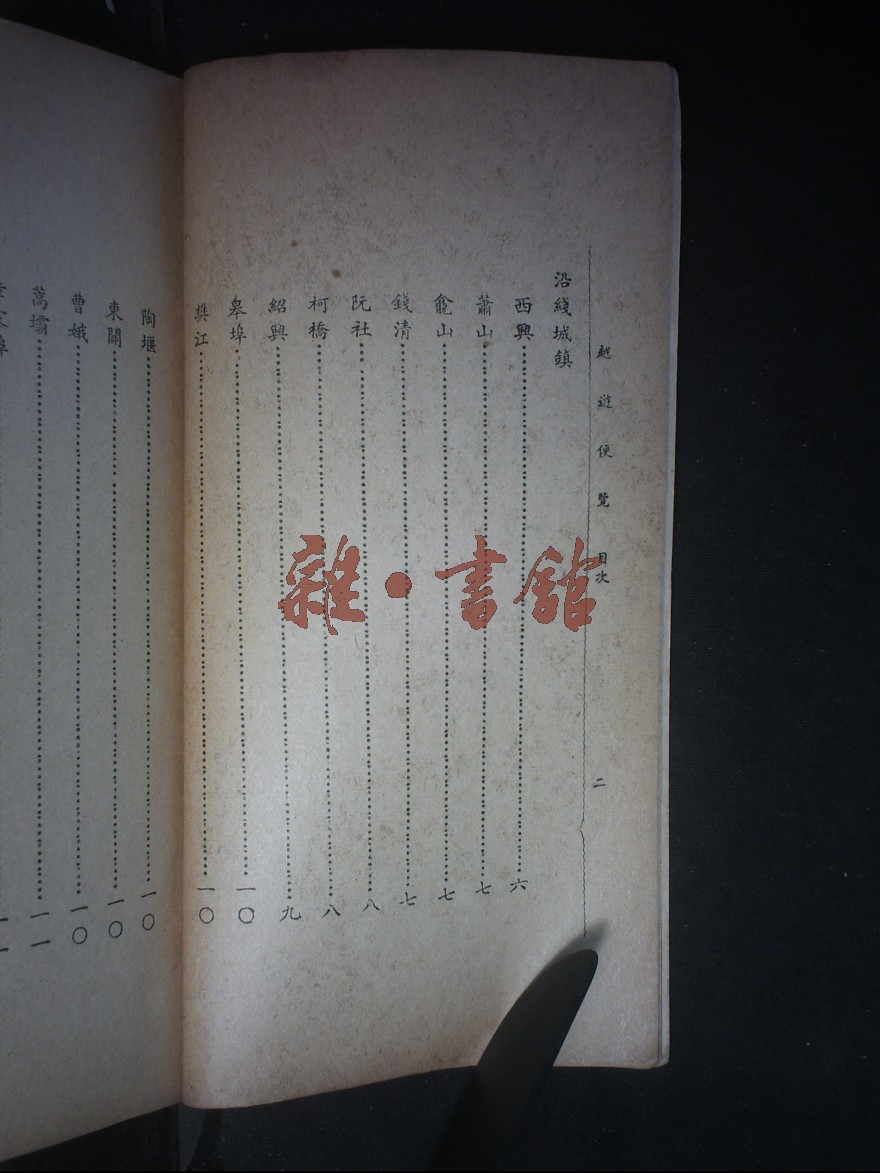 越遊便覽 目次 二
沿綫城鎮
西興……六
蕭山……七
龕山……七
錢清……七
阮社……八
柯橋……八
紹興……九
皋埠……一〇
樊江……一〇
陶堰……一〇
東關……一〇
曹娥……一〇
蒿壩……一一
雜·書館